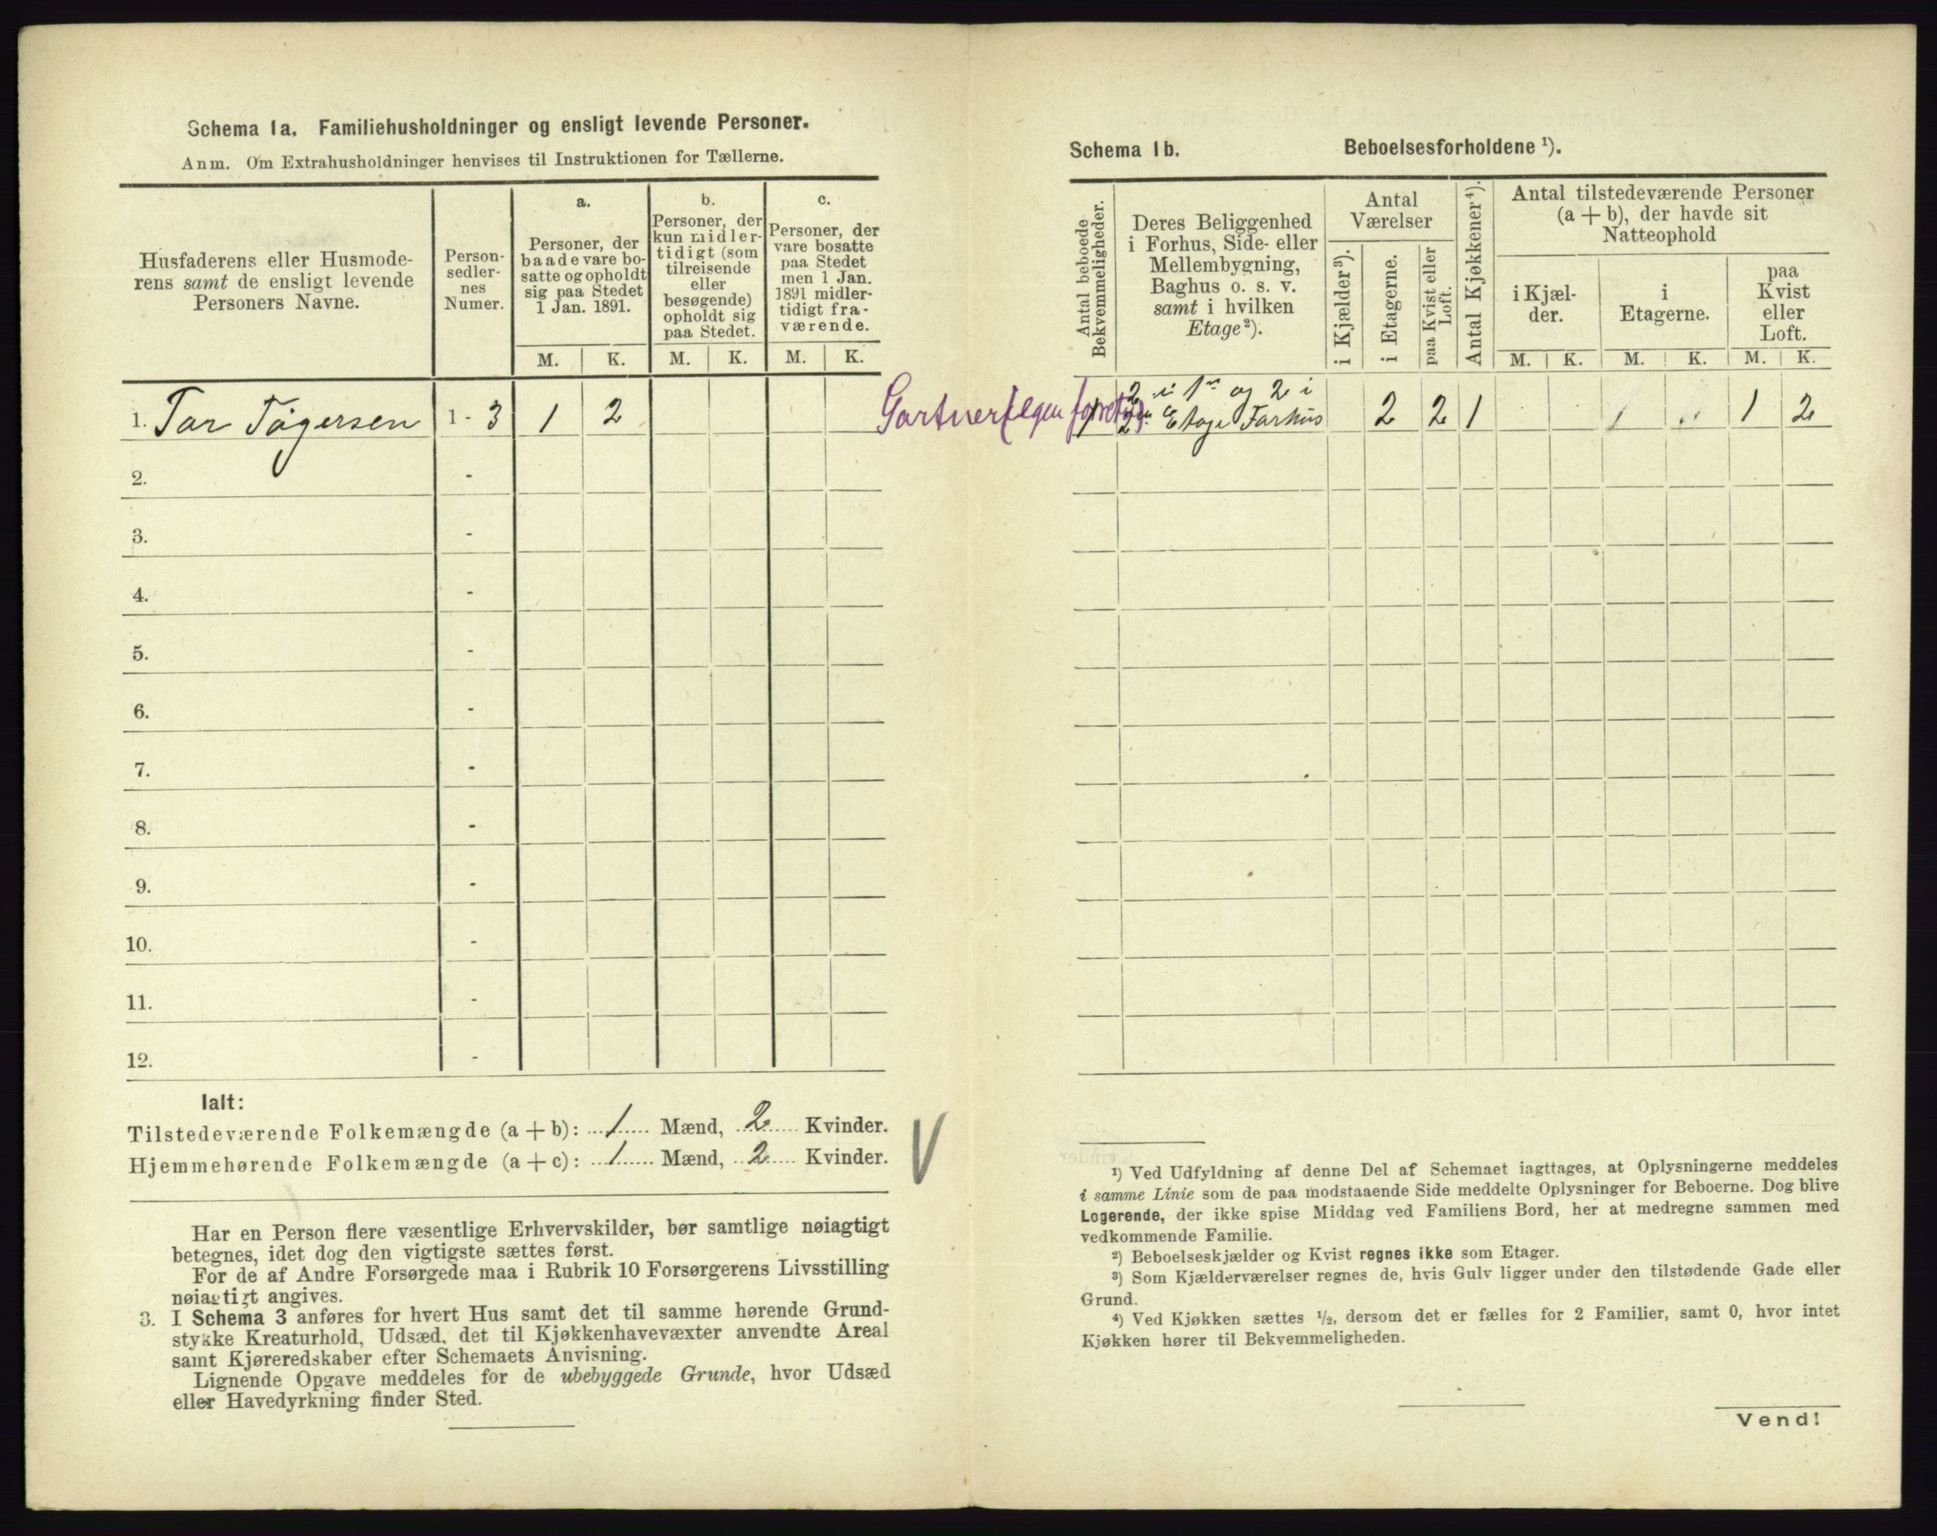 Schema 1a. Familiehusholdninger og ensligt levende Personer.
Anm. Om Extrahusholdninger henvises til Instruktionen for Tællerne.
Husfaderens eller Husmode-
rens samt de ensligt levende
Personers Navne.
Person-
sedler-
nes
Numer.
a.
Personer, der
baade vare bo-
satte og opholdt
sig paa Stedet
1 Jan. 1891.
b.
Personer, der
kun midler-
tidigt (som
tilreisende
eller
besøgende)
opholdt sig
paa Stedet.
c.
Personer, der
vare bosatte
paa Stedet
men 1 Jan.
1891 midler-
tidigt fra-
værende.
M. K. M. K. M. K.
1. Tar Tøgersen 1 - 3 1 2
2. -
3. -
4. -
5. -
6. -
7. -
8. -
9. -
10. -
11. -
12. -
Ialt:
Tilstedeværende Folkemængde (a + b): 1 Mænd, 2 Kvinder.
Hjemmehørende Folkemængde (a + c): 1 Mænd, 2 Kvinder.
Har en Person flere væsentlige Erhvervskilder, bør samtlige nøiagtigt
betegnes, idet dog den vigtigste sættes først.
For de af Andre Forsørgede maa i Rubrik 10 Forsørgerens Livsstilling
nøiagtigt angives.
3. I Schema 3 anføres for hvert Hus samt det til samme hørende Grund-
stykke Kreaturhold, Udsæd, det til Kjøkkenhavevæxter anvendte Areal
samt Kjøreredskaber efter Schemaets Anvisning.
Lignende Opgave meddeles for de ubebyggede Grunde, hvor Udsæd
eller Havedyrkning finder Sted.
Schema 1b. Beboelsesforholdene ¹).
Antal beboede
Bekvemmeligheder.
Deres Beliggenhed
i Forhus, Side- eller
Mellembygning,
Baghus o. s. v.
samt i hvilken
Etage ²).
Antal
Værelser
i Kjælder ³).
i Etagerne.
paa Kvist eller
Loft.
Antal Kjøkkener ⁴).
Antal tilstedeværende Personer
(a + b), der havde sit
Natteophold
i Kjæl-
der.
i
Etagerne.
paa
Kvist
eller
Loft.
M. K. M. K. M. K.
Gartner
2 i 1 og 2 i
1 2 Etage Forhus 2 2 1 1 2
¹) Ved Udfyldning af denne Del af Schemaet iagttages, at Oplysningerne meddeles
i samme Linie som de paa modstaaende Side meddelte Oplysninger for Beboerne. Dog blive
Logerende, der ikke spise Middag ved Familiens Bord, her at medregne sammen med
vedkommende Familie.
²) Beboelseskjælder og Kvist regnes ikke som Etager.
³) Som Kjælderværelser regnes de, hvis Gulv ligger under den tilstødende Gade eller
Grund.
⁴) Ved Kjøkken sættes ½, dersom det er fælles for 2 Familier, samt 0, hvor intet
Kjøkken hører til Bekvemmeligheden.
Vend!